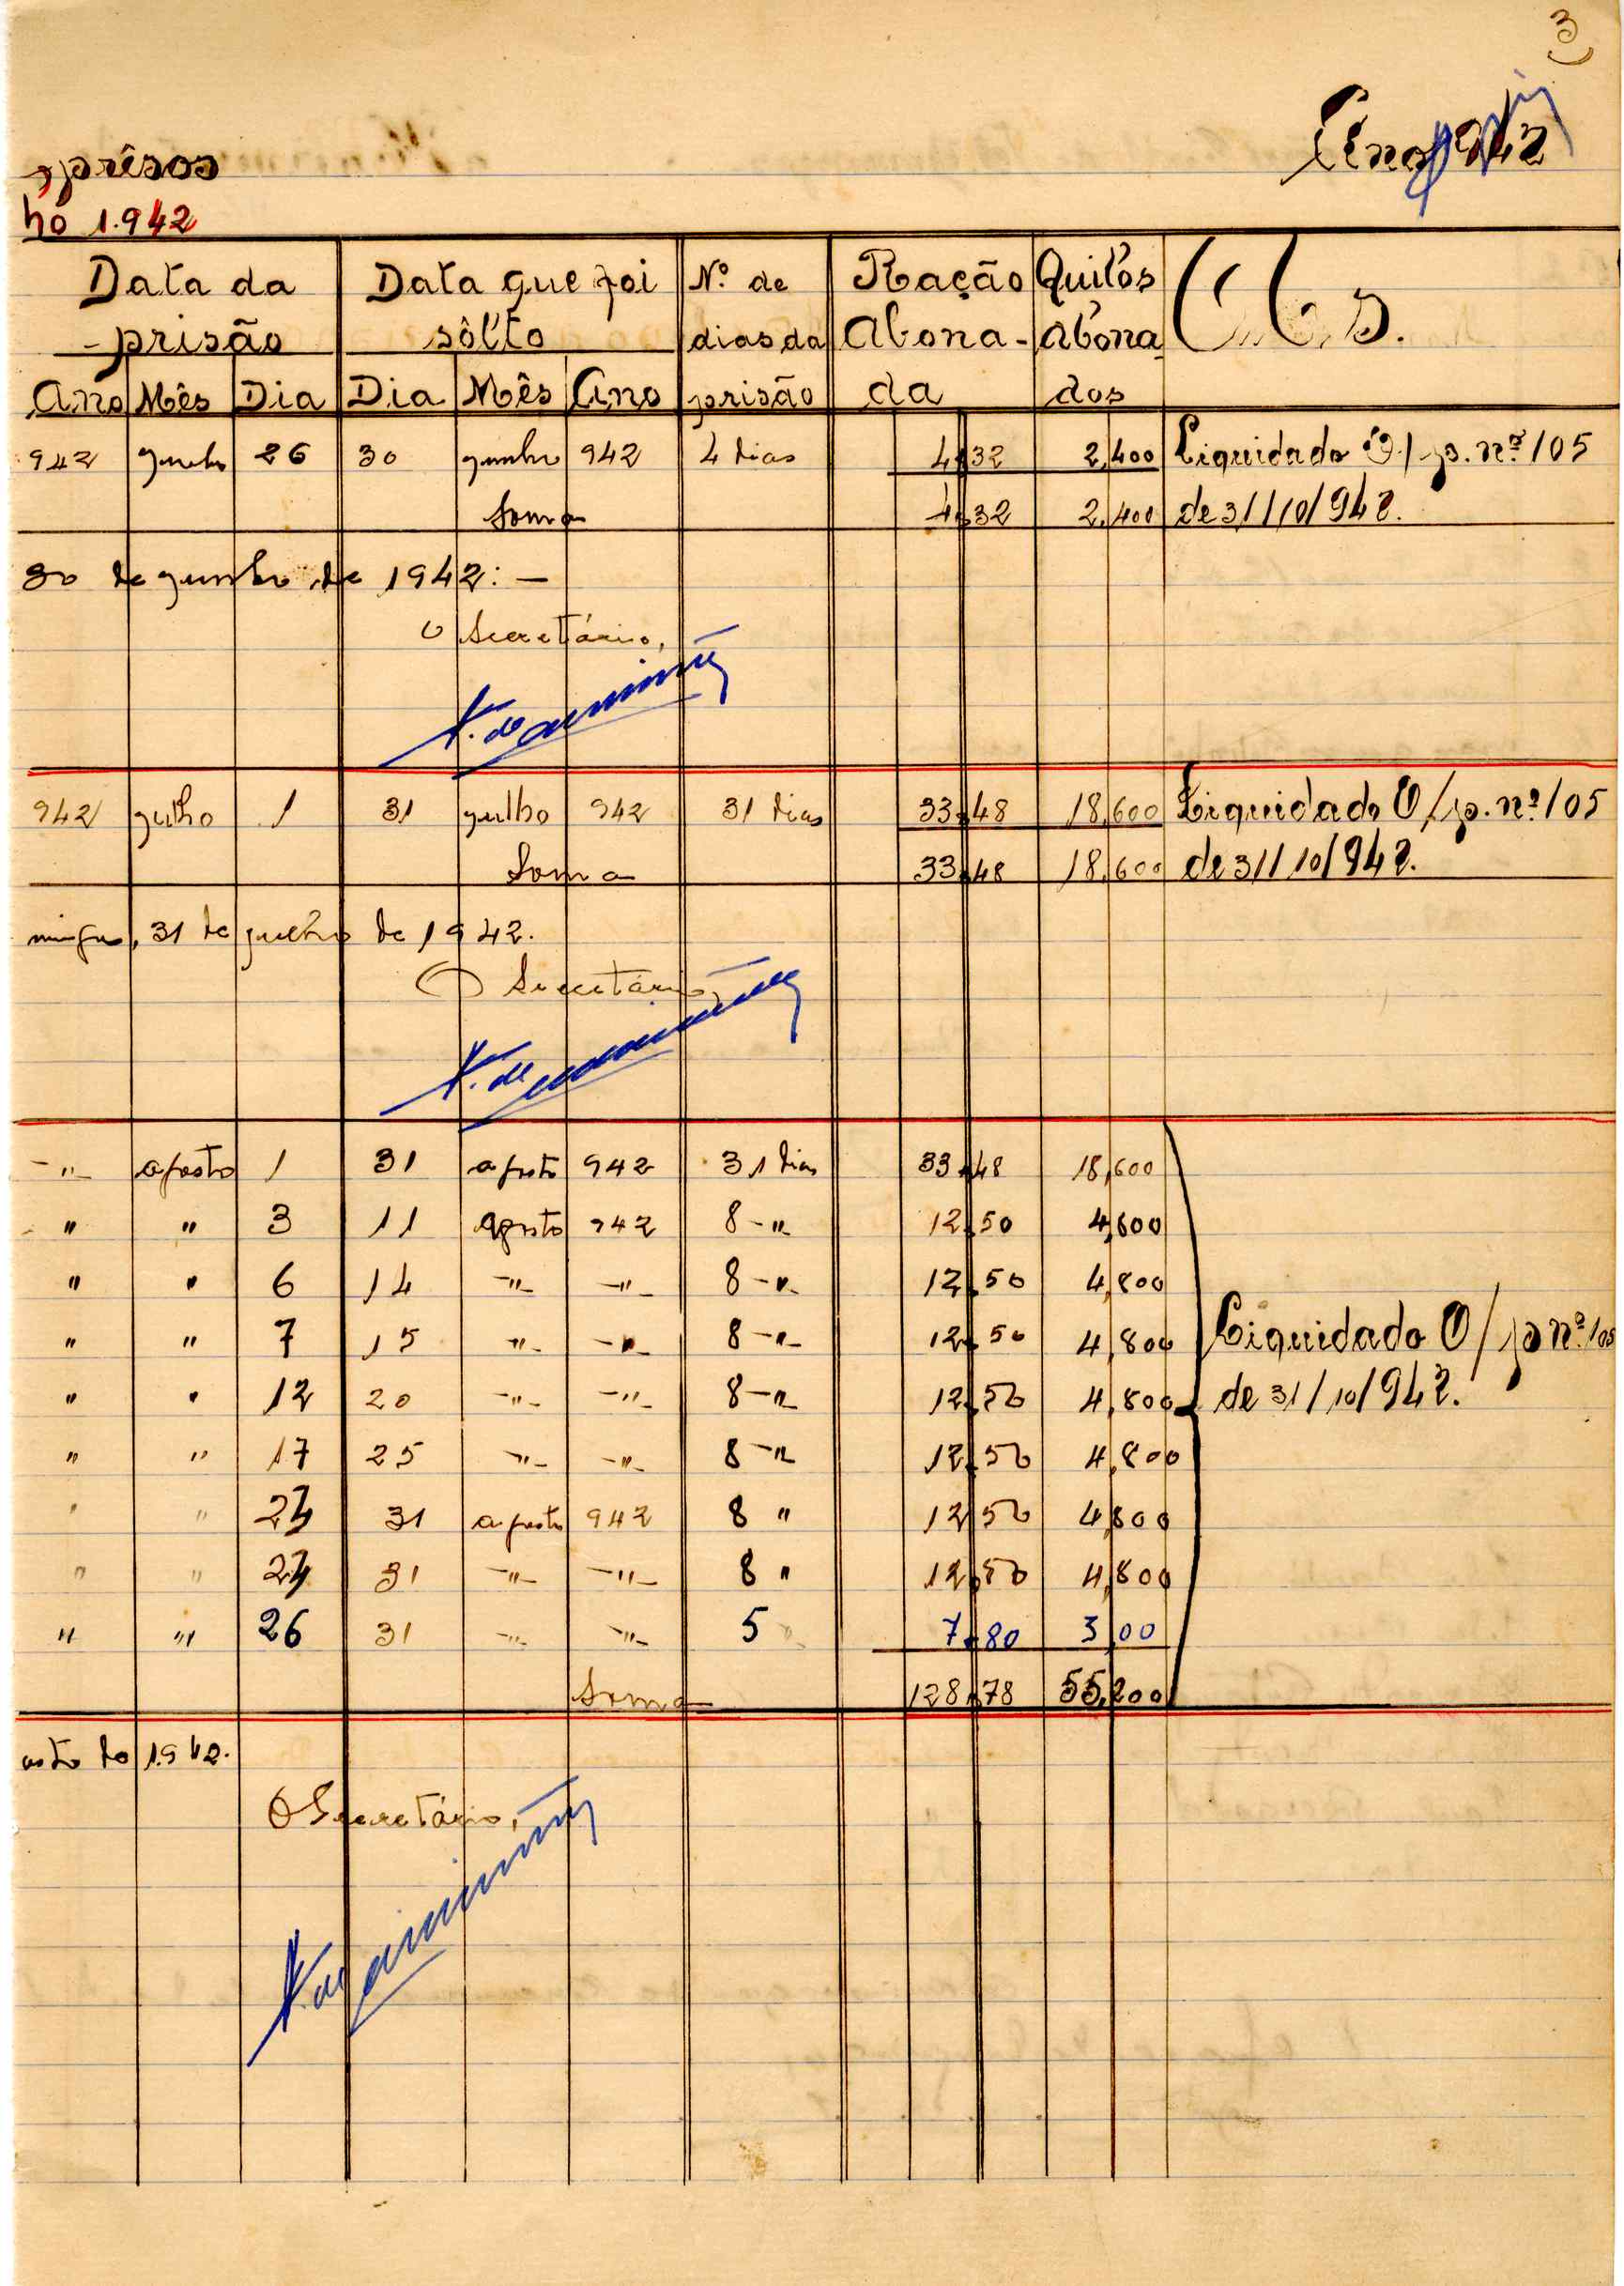 3
Ano 942
presos
ho 1.942
Data da Data que foi Nº de Ração Quilos Obs.
prisão sôlto dias da Abona- Abona-
Ano Mês Dia Dia Mês Ano prisão da dos
942 junho 26 30 junho 942 4 dias 4,32 2,400 Liquidado O/p. nº 105
Soma 4,32 2,400 de 31/10/942.
30 de junho de 1942: —
O Secretário,
942 julho 1 31 julho 942 31 dias 33,48 18,600 Liquidado O/p. nº 105
Soma 33,48 18,600 de 31/10/942.
31 de julho de 1942.
O Secretário,
-"- agosto 1 31 agosto 942 31 dias 33,48 18,600
" " 3 11 agosto 942 8 -"- 12,50 4,800
" " 6 14 -"- -"- 8 -"- 12,50 4,800
" " 7 15 -"- -"- 8 -"- 12,50 4,800 Liquidado O/p nº 105
" " 12 20 -"- -"- 8 -"- 12,50 4,800 de 31/10/942.
" " 17 25 -"- -"- 8 -"- 12,50 4,800
" " 31 agosto 942 8 " 12,50 4,800
" " 31 -"- -"- 8 " 12,50 4,800
" " 26 31 -"- -"- 5 7,80 3,00
Soma 128,78 55,200
osto de 1942.
O Secretário,